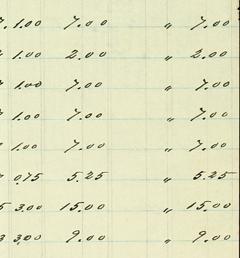 7 1.00 7.00 " 7.00
1.00 2.00 " 2.00
7 1.00 7.00 " 7.00
7 1.00 7.00 " 7.00
7 1.00 7.00 " 7.00
7 0.75 5.25 " 5.25
5 3.00 15.00 " 15.00
3 3.00 9.00 " 9.00